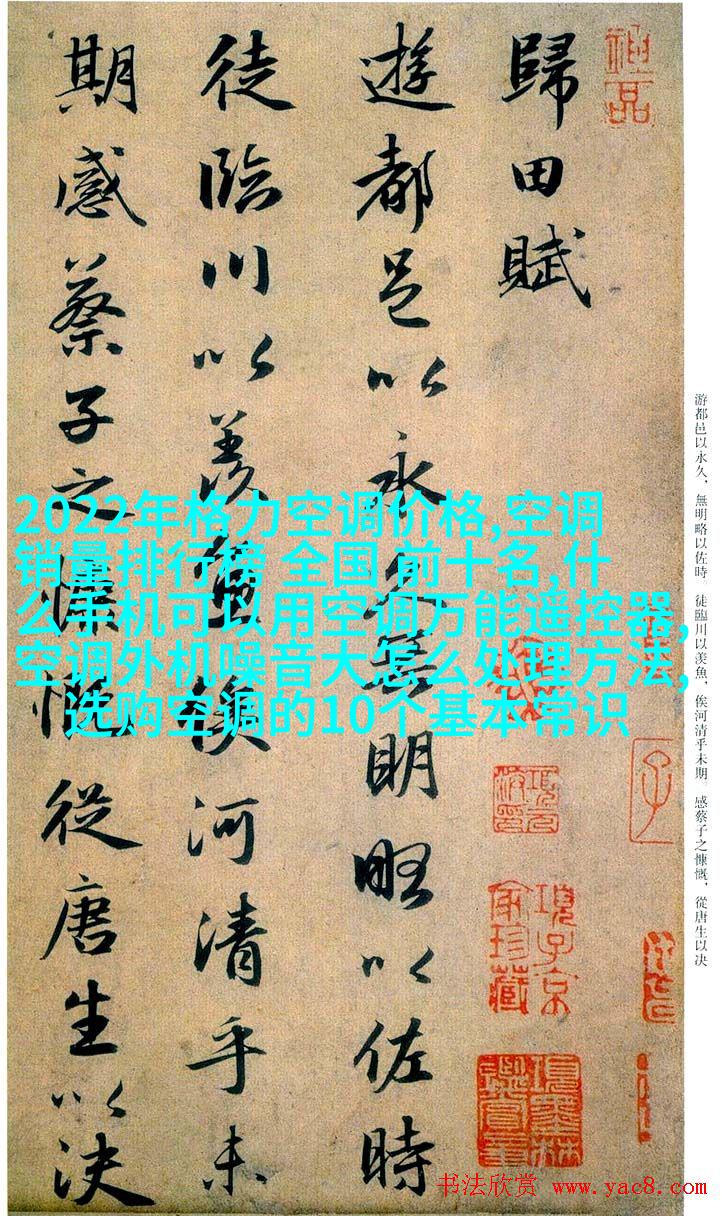 歸田賦
遊都邑以永久無明略以佐時
徒臨川以羨魚俟河清乎未
期感蔡子之慷慨從唐生以決
神品
子
項子京家珍藏
項墨林鑑賞章
游都邑以永久，無明略以佐時。徒臨川以羨魚，俟河清乎未期。感蔡子之慷慨，從唐生以决
2022年格力空调价格,空调
销量排行榜 全国 前十名,什
么手机可以用空调万能遥控器,
空调外机噪音大怎么处理方法,
选购空调的10个基本常识
书法欣赏 www.yac8.com